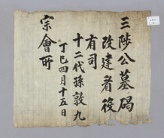 三陟公墓碣
改建者後
有司
十二代孫敦九
丁巳四月十五日
宗會所